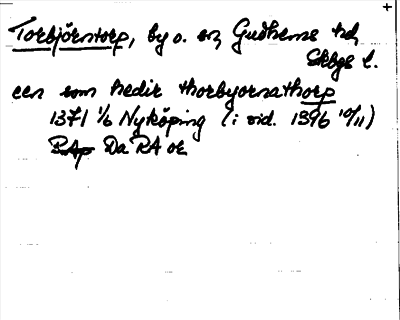 Torbjörntorp, by o. sn, Gudhems hd,
Skbgs l.
een som hedir thorbyornathorp
1371 1/6 Nyköping (i vid. 1396 10/11)
RAp Da RA or